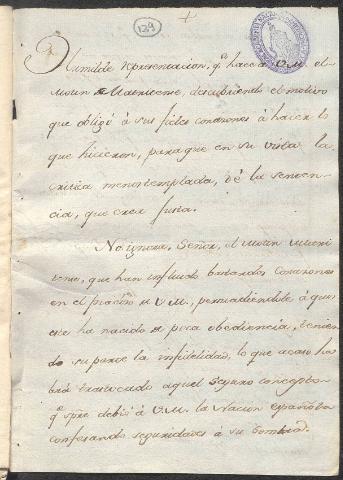 139
Humilde representacion, qe hace a V.M. el
Motin Matritense, descubriendo el motivo
que obligó à sus fieles corazones à hacer lo
que hicieron, para que en su vista la
critica menos templada, dé la senten-
cia, que crea justa.
No ignora, Señor, el Motin Matri
tense, que han influido bastardos corazones
en el de V.M., persuadiendole à que
este ha nacido de poca obediencia, tenien
do su parte la infidelidad, lo que acaso ha
brá trastocado aquel seguro concepto
qe spre debió à V.M. la Nacion española
confesando seguridades à su